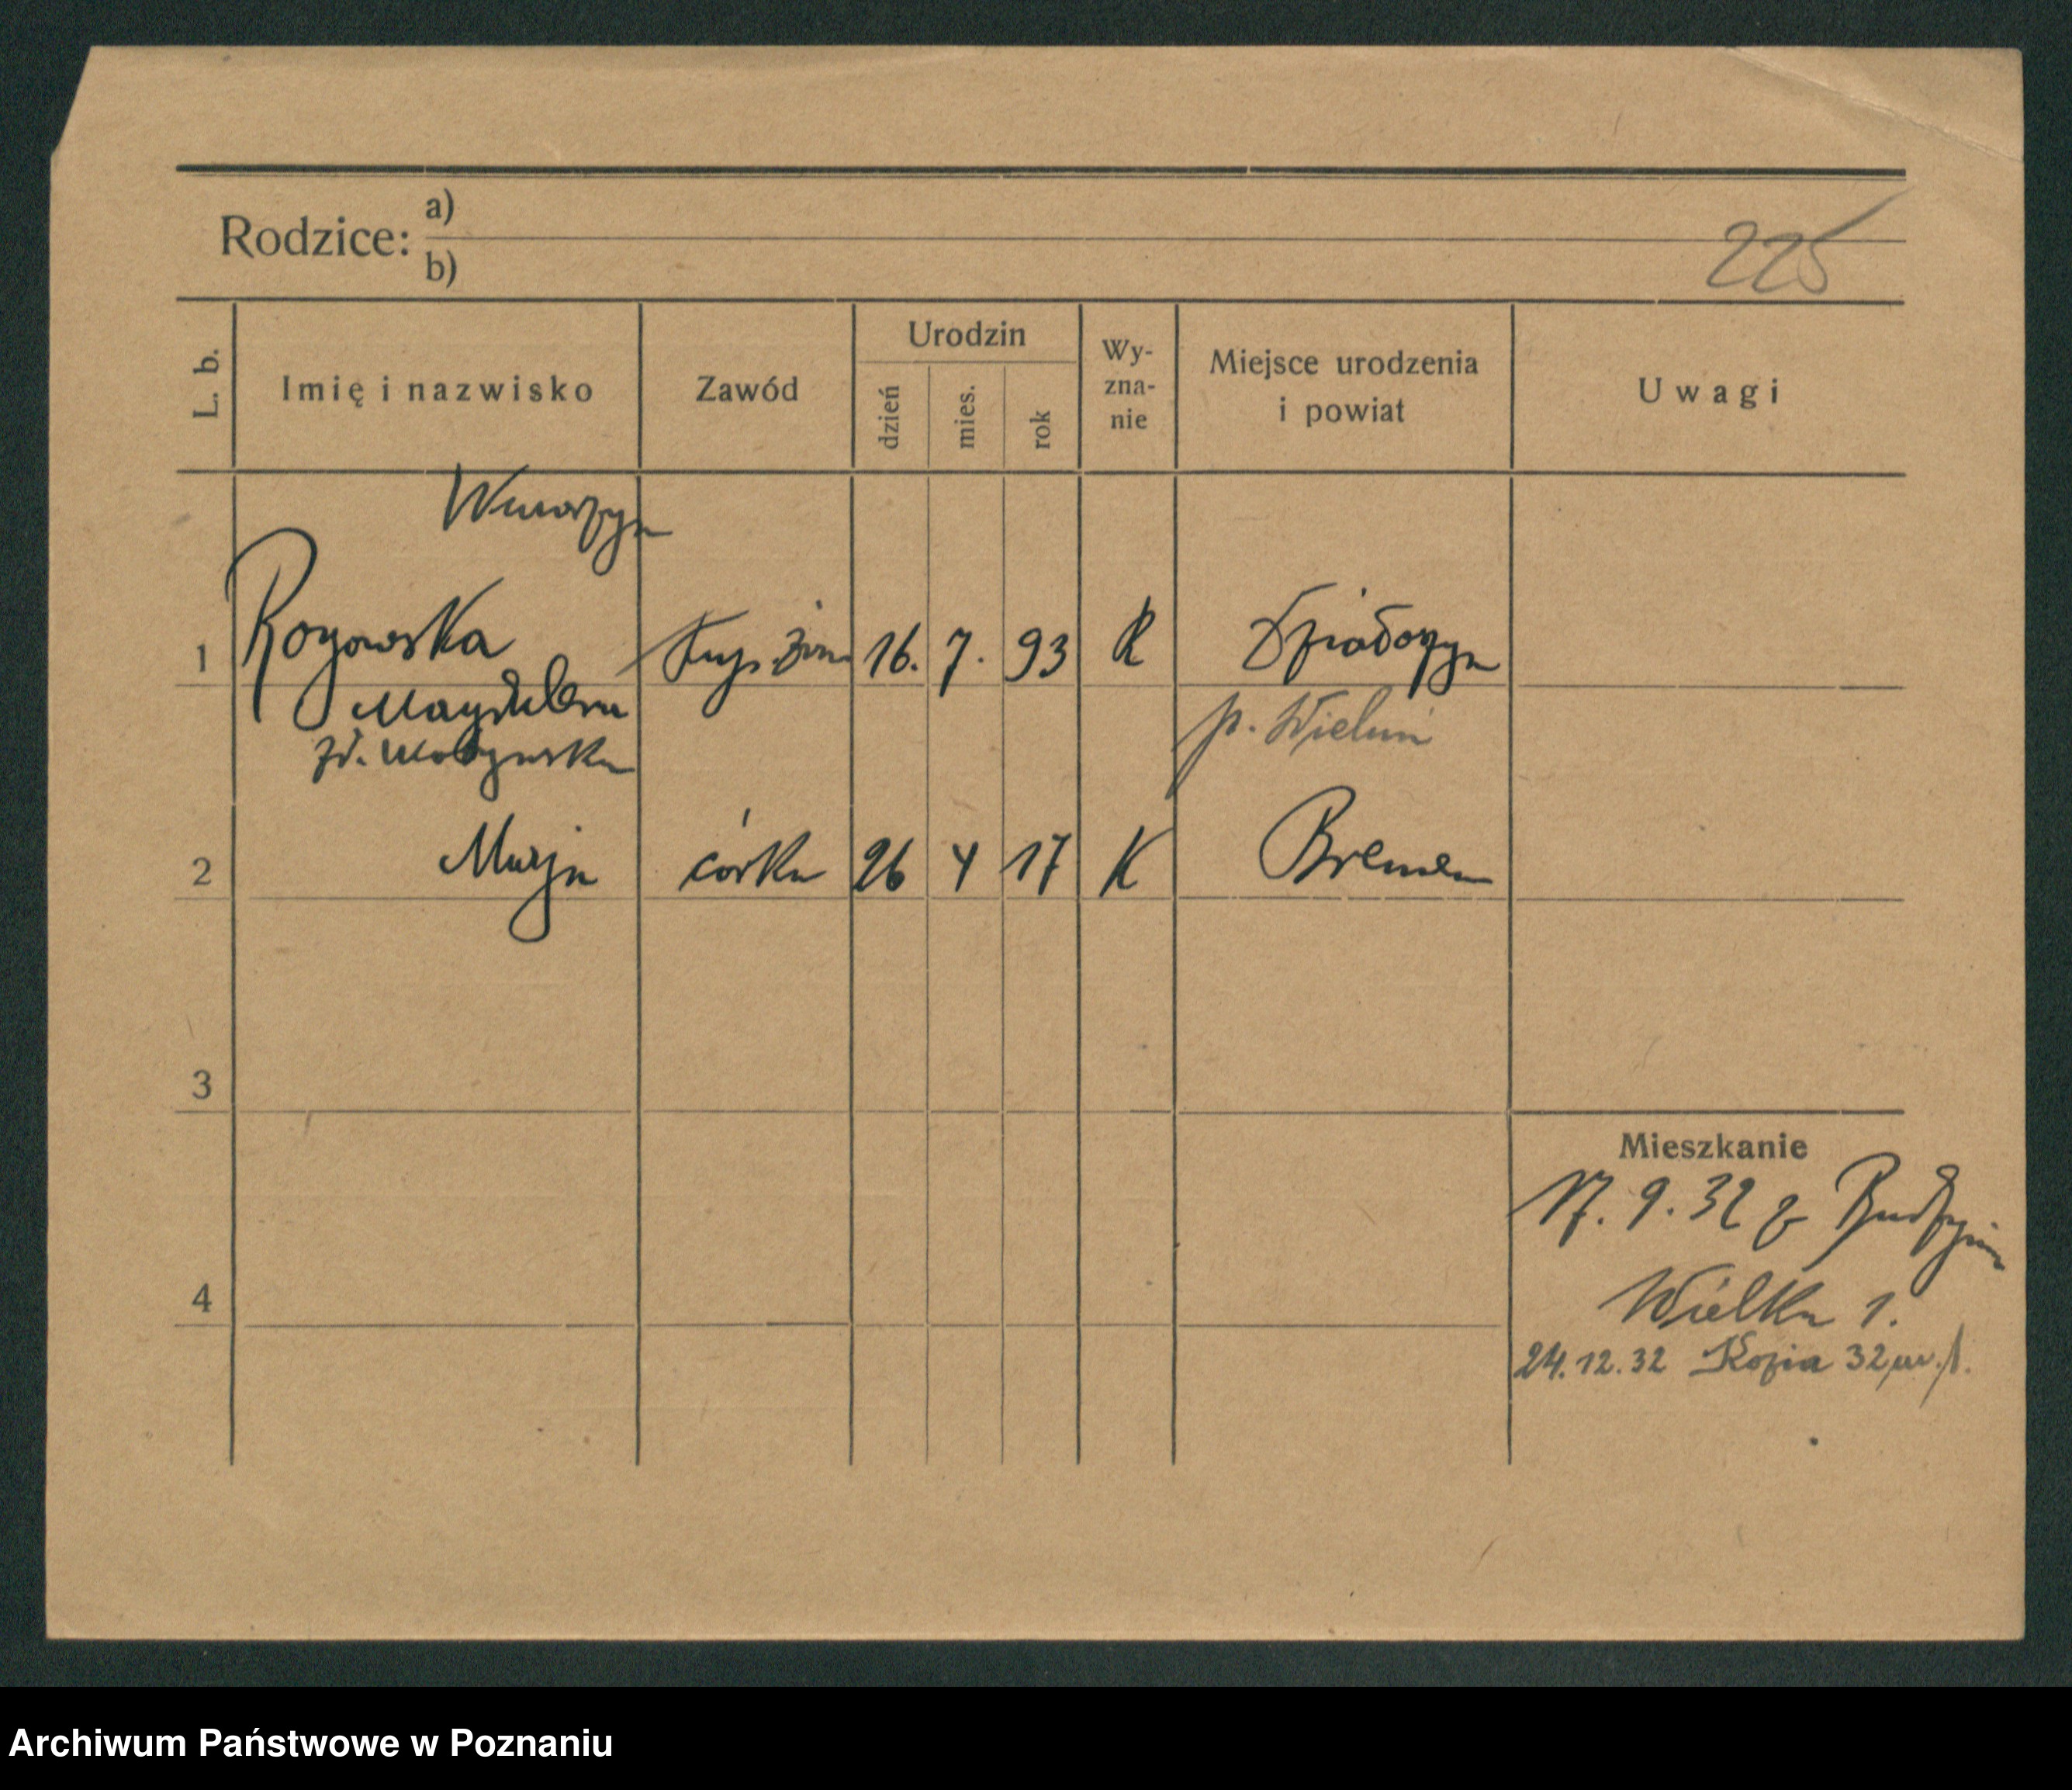 Rodzice: a)
b)
225
L. b.
Imię i nazwisko
Zawód
Urodzin
dzień
mies.
rok
Wy-
zna-
nie
Miejsce urodzenia
i powiat
Uwagi
1
Rogowska
Magdalena
16. 7. 93
K
p. Wieluń
2 Marja córka 26 4 17 K Bremen
3
4
Mieszkanie
17. 9. 32 z
Wielka 1.
24.12.32 Kozia 32
Archiwum Państwowe w Poznaniu